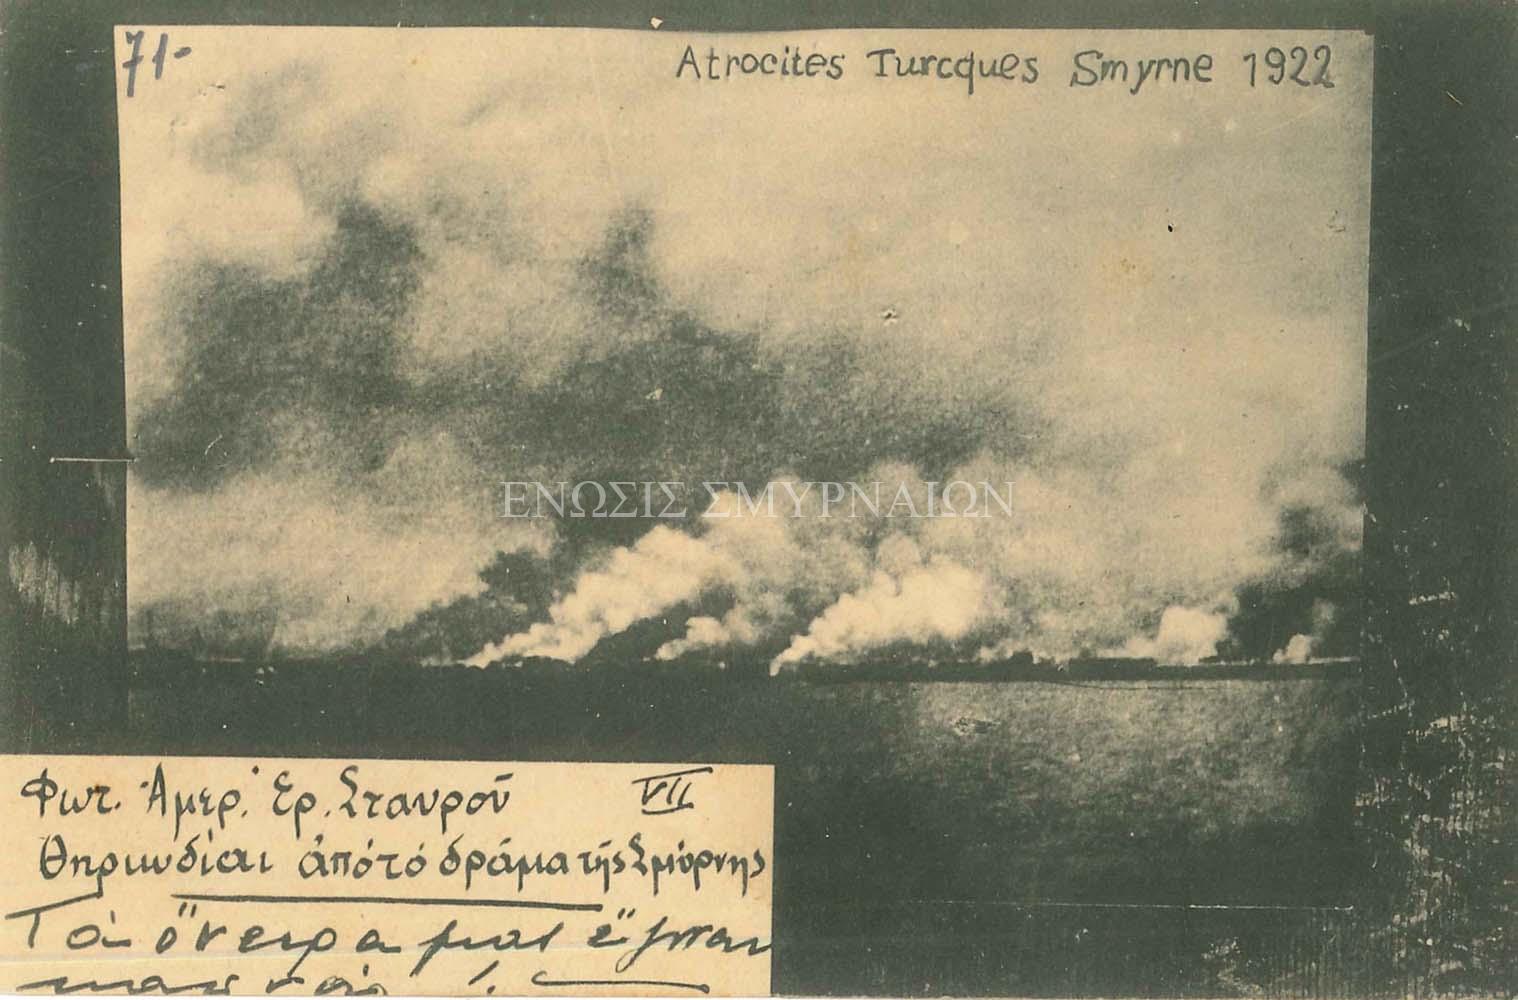 71-
Atrocités Turcques Smyrne 1922
ΕΝΩΣΙΣ ΣΜΥΡΝΑΙΩΝ
Φωτ. Ἀμερ. Ἐρ. Σταυροῦ VII
Θηριωδίαι ἀπό τό δράμα τῆς Σμύρνης
Τά ὄνειρα μας ἔγιναν
καπνός!